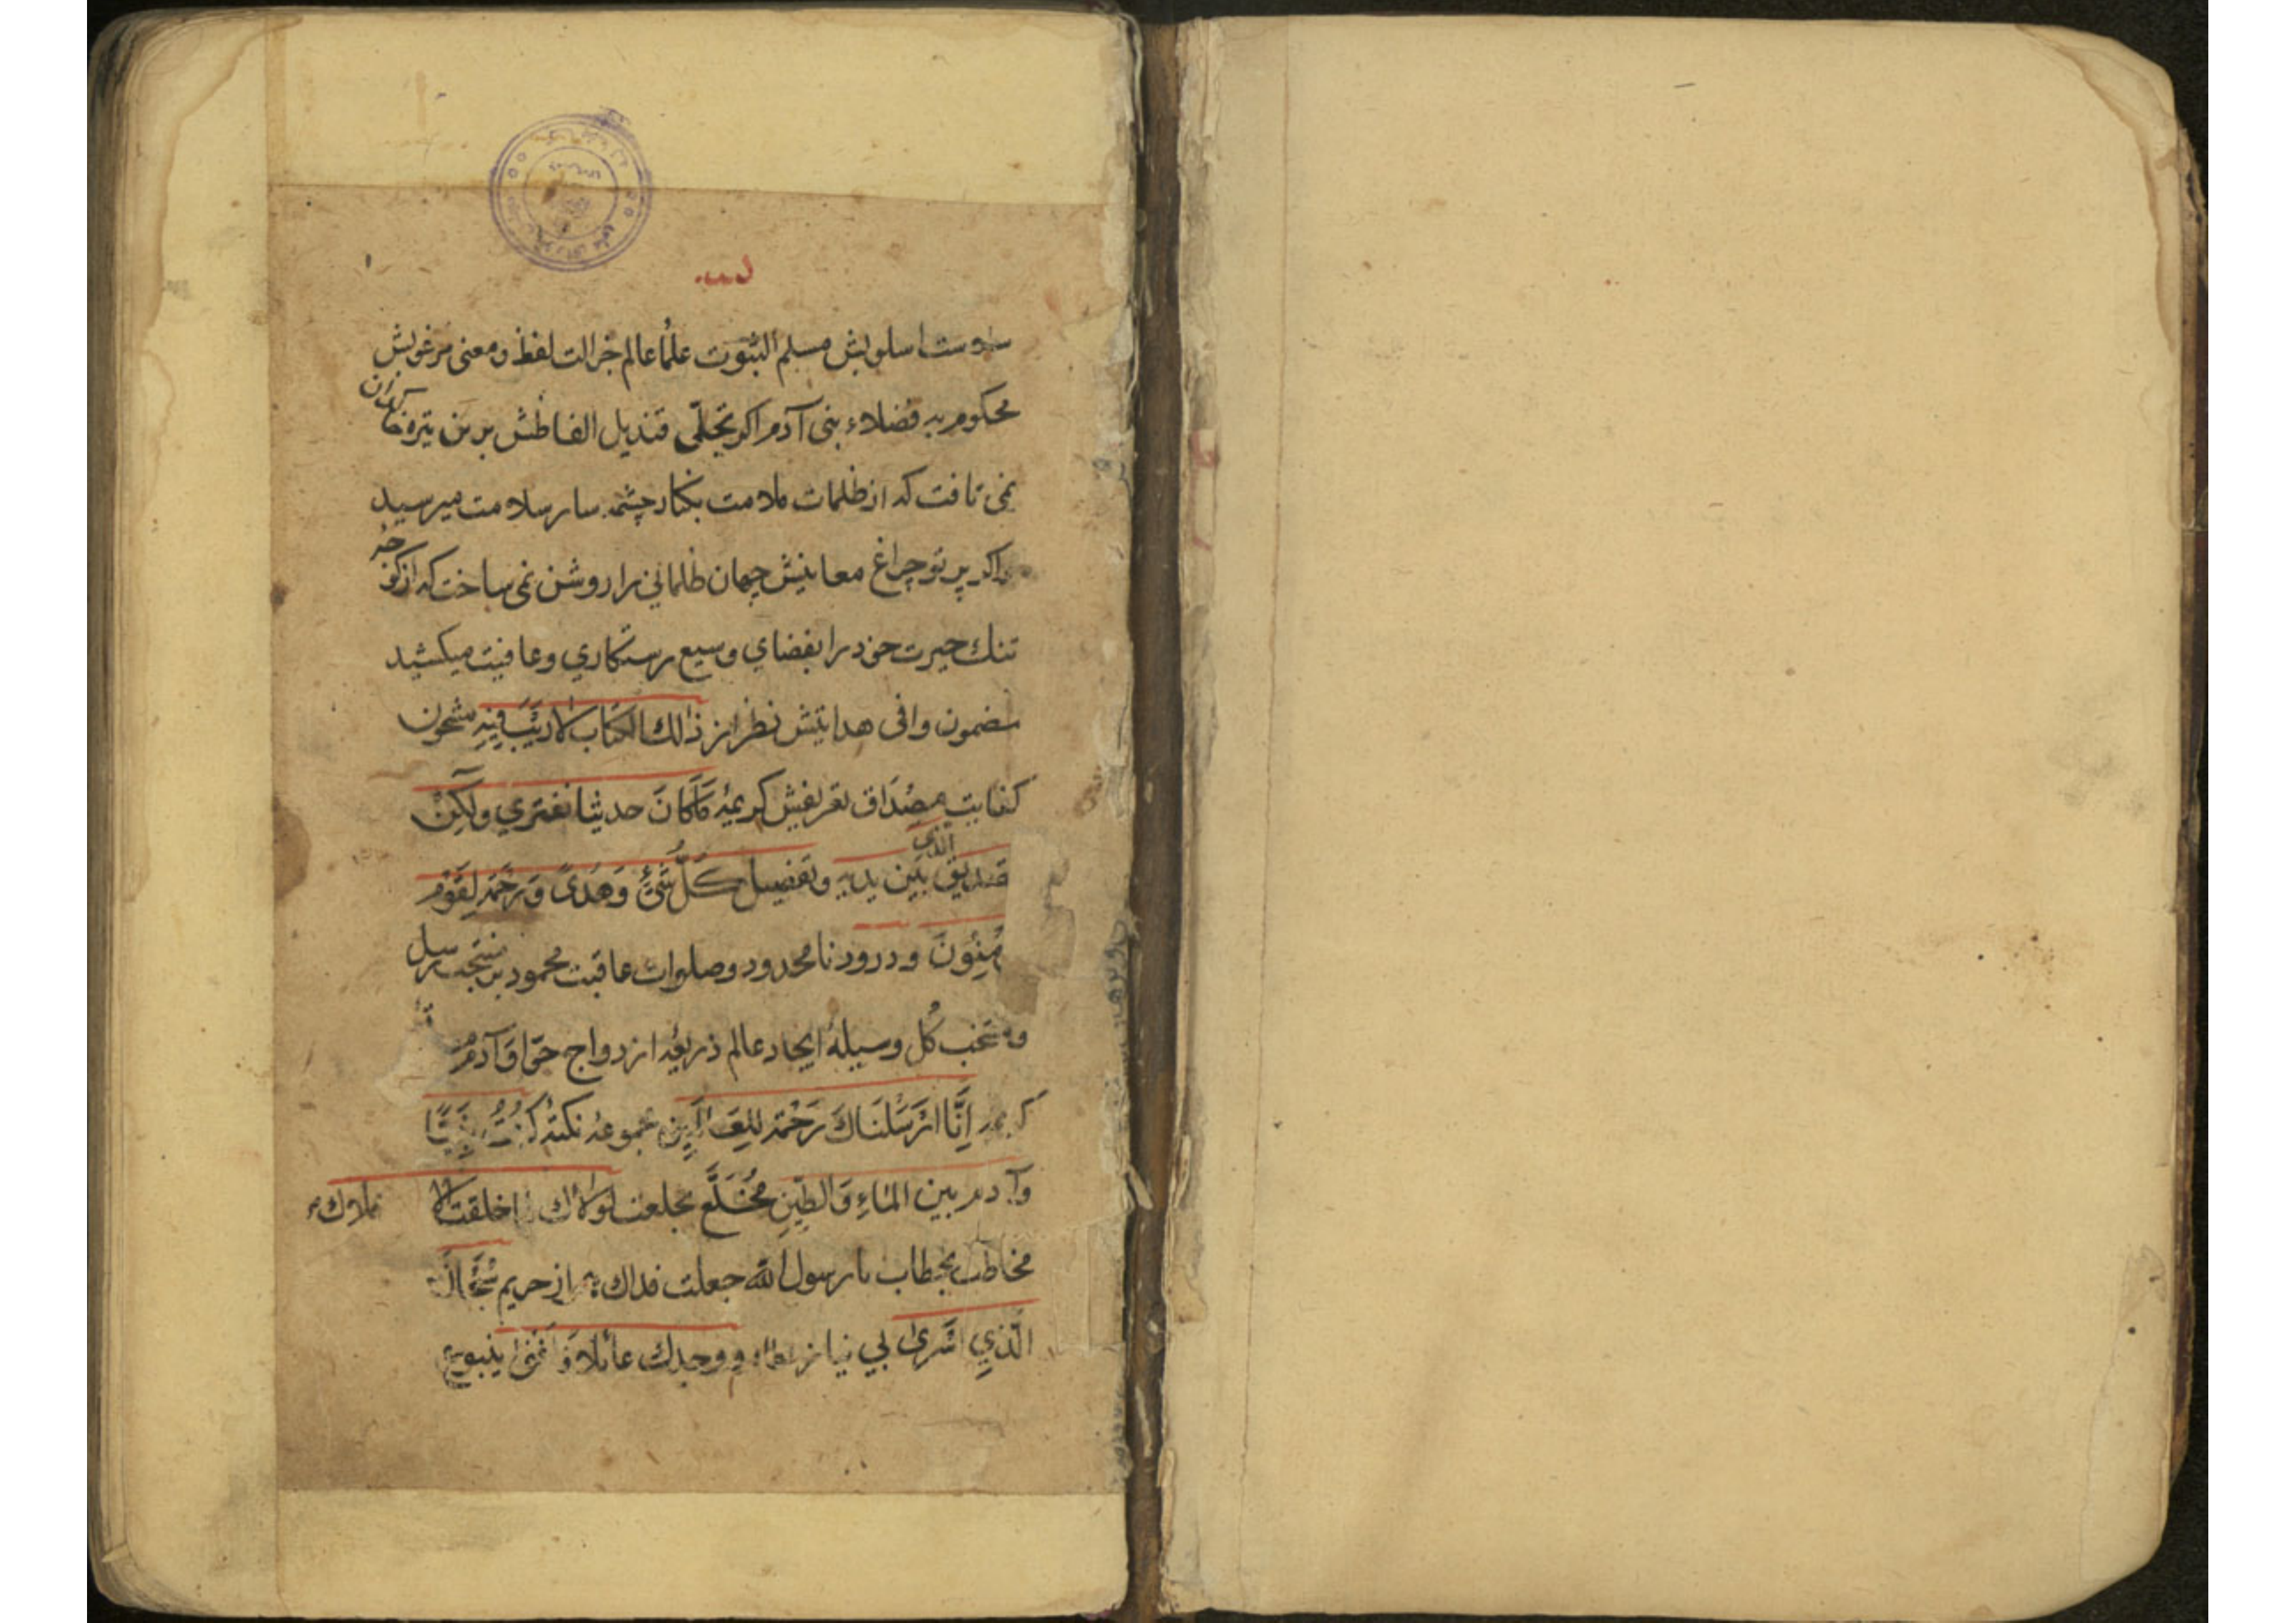 سلاست اسلوبش مسلم الثبوت علماء عالم جزالت لفظ و معنی مرغوبش
محکوم به فضلاء بنی آدم اکر تجلّی قندیل الفاظش برین تیره خاکدان
نمی تافت که از ظلمات ملامت بکنار چشمه سار سلامت میرسید
واکر پرتو چراغ معانیش جهان ظلمانی را روشن نمی ساخت که از کوچه
تنك حیرت خود را بفضای وسیع رستکاری و عافیت میکشید
مضمون وافی هدایتش نظر از ذٰلك الكتاب لا رَيْبَ فِيْهِ مشحون
کفایت مِصْدَاق تعریفش کریمهٔ مَا كَانَ حديثا نفتري ولٰكِنْ
تصديق الذي بَيْن يديه وتفصيل كُلَّ شَيْئٍ وَهُدىً وَرَحْمَة لِقَوْم
مِنُونَ و درود نامحدود وصلوات عاقبت محمود بر منتجب رسل
ومنتخب کُل وسیلهٔ ایجاد عالم ذریعهٔ ازدواج حَوّا وَ آدم
کریمه اِنَّا اَرْسَلْنَاكَ رَحْمَة لِلعَالَمِين مجموعهٔ نکتهٔ كُنْتُ نَبِيًّا
وآدم بين المَاءِ وَالطِّينِ مُخَلَّع بخلعت لولاك لما خلقت الا
فلاك
مخاطب بخطاب یا رسول الله جعلت فداك از حریم سُبْحَانَ
الَّذِي اَسْرىٰ بي نیاز ووجدك عائلا فَاَغْنىٰ ینبوع